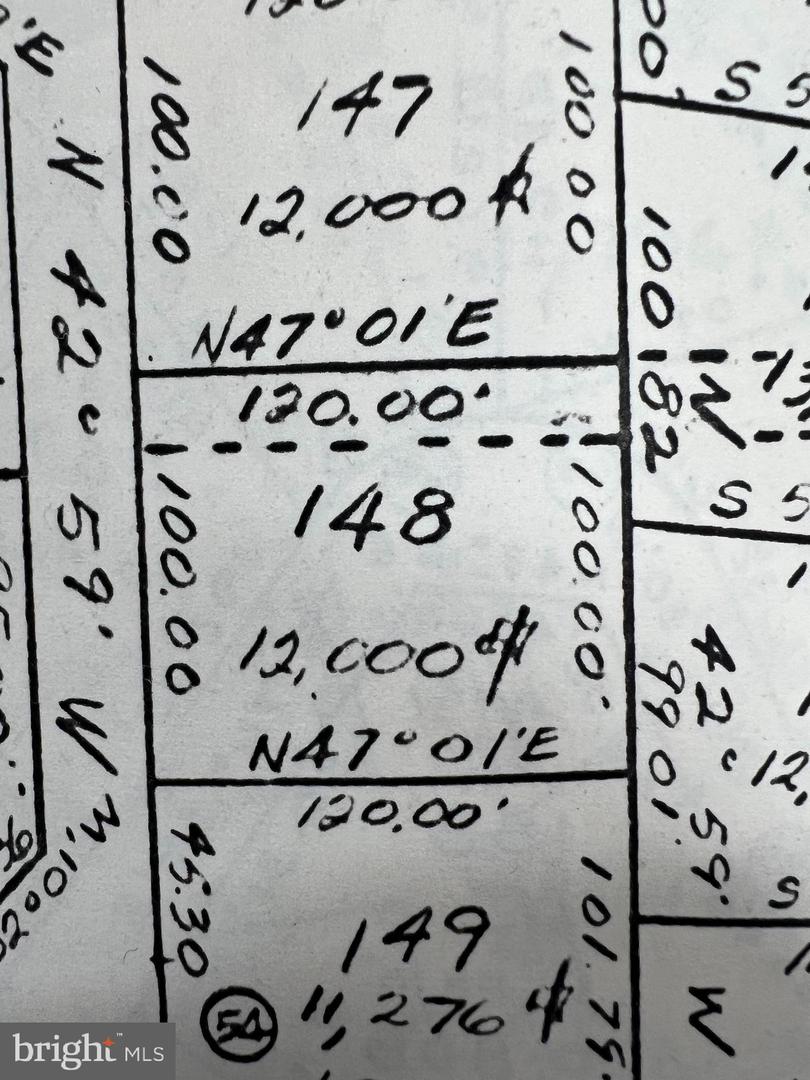 147
100.00
100.00
12,000 ⌗
N47°01'E
120.00'
148
100.00
100.00'
12,000 ⌗
N47°01'E
120.00'
149
45.30
101.75
11,276 ⌗
54
N 42° 59' W
100.82
N
42° 59'
99.01'
W
S 5
S 5
S
12,
bright MLS